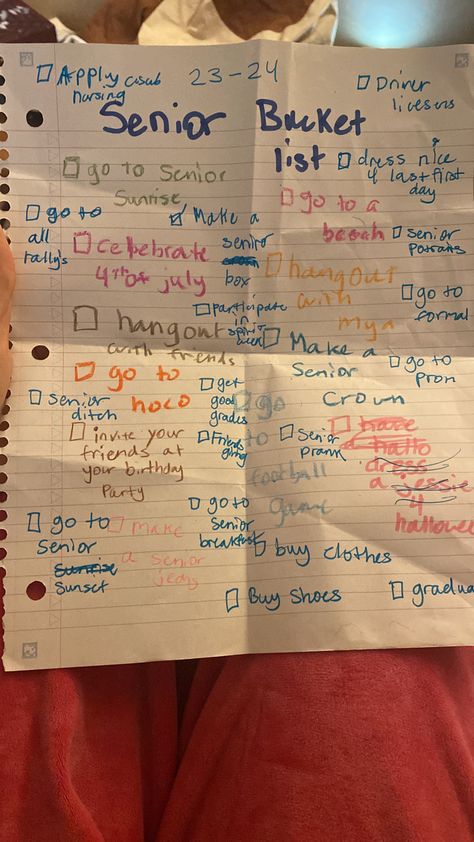 ☐ Appliy
nursing
23-24
☐ Driver
Senior Bucket
list
☐ dress nice
4 last first
day
☐ go to Senior
Sunrise
☐ go to
all
rally's
☑ Make a
senior
box
☐ go to a
beach
☐ senior
☐ celebrate
4th of july
☐ hangout
with
mya
☐ go to
formal
☐ hangout
with friends
☐ participate
in
spirit
week
☐ Make a
Senior
Crown
☐ go to
prom
☐ go to
hoco
☐ get
good
grades
☐ go
to
football
game
☐ senior
ditch
☐ invite your
friends at
your birthday
Party
☐ Friends
giving
☐ Senior
prank
☐ have
dress
a jessie
4
hallowee
☐ go to
Senior
sunrise
sunset
☐ make
a senior
☐ go to
senior
breakfast
☐ buy clothes
☐ Buy shoes
☐ gradua